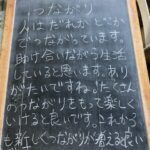 つながり
人はだれかどこか
でつながっています。
助け合いながら生活
していると思います。あり
がたいですね。たくさん
のつながりをもって楽しく
いけると良いです。これから
も新しくつながりが増える良い